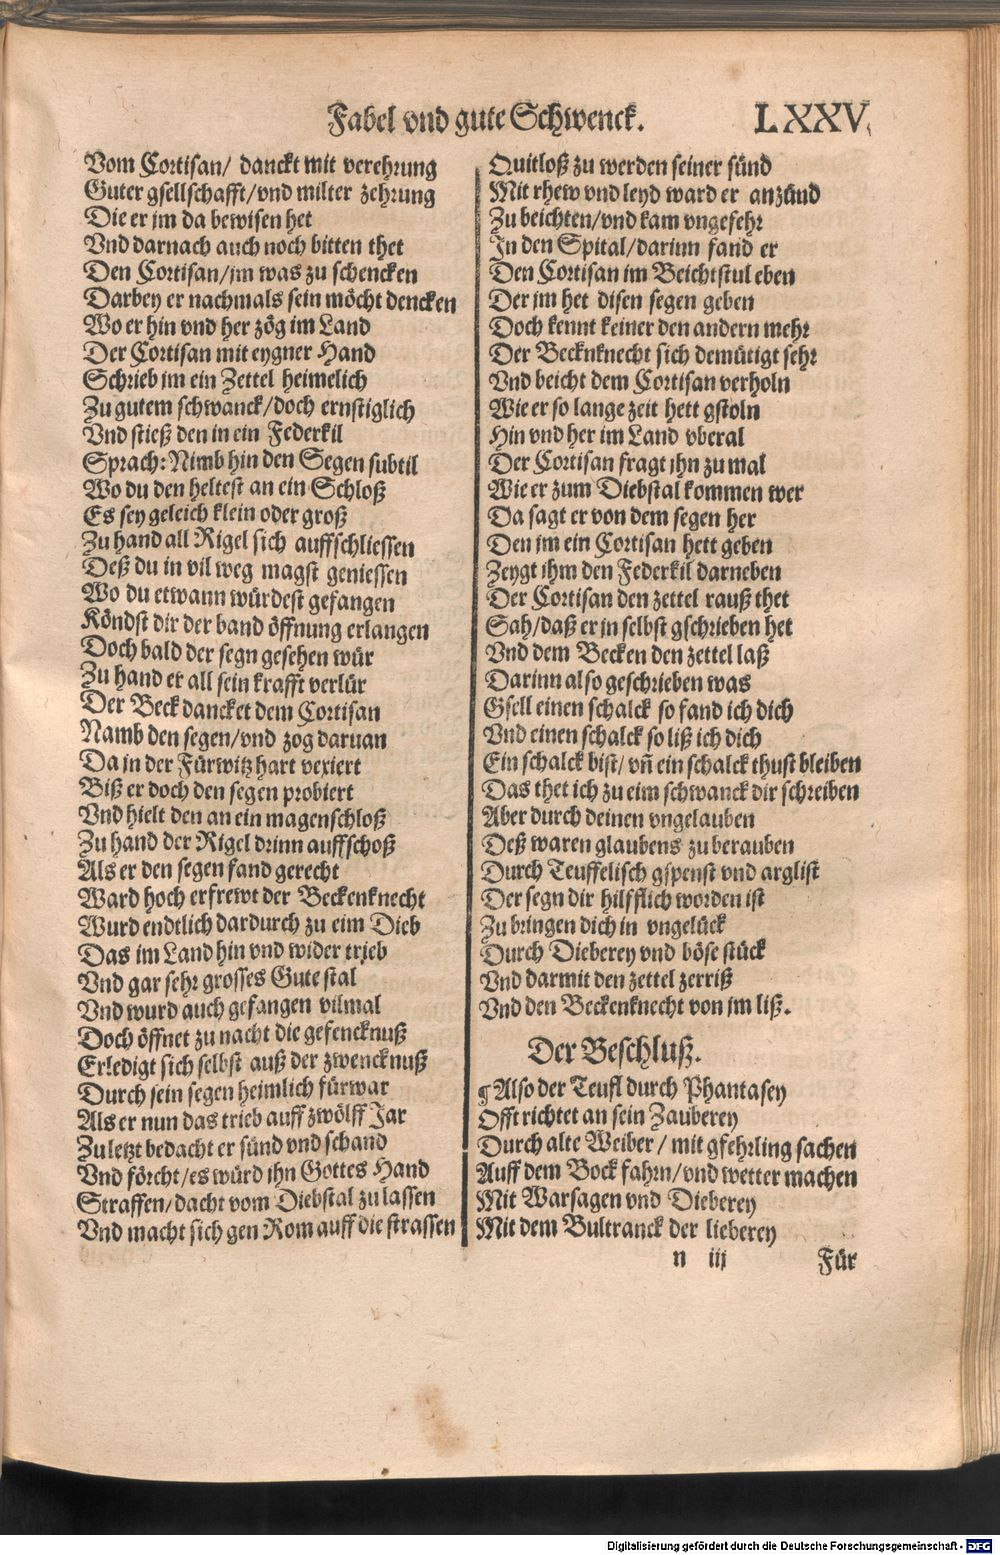 Fabel vnd gute Schwenck. LXXV.
Vom Cortisan/ danckt mit verehrung
Guter gsellschafft/vnd milter zehrung
Die er jm da bewisen het
Vnd darnach auch noch bitten thet
Den Cortisan/jm was zu schencken
Darbey er nachmals sein möcht dencken
Wo er hin vnd her zög im Land
Der Cortisan mit eygner Hand
Schrieb jm ein Zettel heimelich
Zu gutem schwanck/doch ernstiglich
Vnd stieß den in ein Federkil
Sprach: Nimb hin den Segen subtil
Wo du den heltest an ein Schloß
Es sey geleich klein oder groß
Zu hand all Rigel sich auffschliessen
Deß du in vil weg magst geniessen
Wo du etwann würdest gefangen
Köndst dir der band öffnung erlangen
Doch bald der segn gesehen wür
Zu hand er all sein krafft verlür
Der Beck dancket dem Cortisan
Namb den segen/vnd zog daruan
Da in der Fürwitz hart vexiert
Biß er doch den segen probiert
Vnd hielt den an ein magenschloß
Zu hand der Rigel drinn auffschoß
Als er den segen fand gerecht
Ward hoch erfrewt der Beckenknecht
Wurd endtlich dardurch zu eim Dieb
Das im Land hin vnd wider trieb
Vnd gar sehr grosses Gute stal
Vnd wurd auch gefangen vilmal
Doch öffnet zu nacht die gefencknuß
Erledigt sich selbst auß der zwencknuß
Durch sein segen heimlich fürwar
Als er nun das trieb auff zwölff Jar
Zu letzt bedacht er sünd vnd schand
Vnd förcht/es würd jhn Gottes Hand
Straffen/dacht vom Diebstal zu lassen
Vnd macht sich gen Rom auff die strassen
Quitloß zu werden seiner sünd
Mit rhew vnd leyd ward er anzünd
Zu beichten/vnd kam vngefehr
In den Spital/darinn fand er
Den Cortisan im Beichtstul eben
Der jm het disen segen geben
Doch kennt keiner den andern mehr
Der Becknknecht sich demütigt sehr
Vnd beicht dem Cortisan verholn
Wie er so lange zeit hett gstoln
Hin vnd her im Land vberal
Der Cortisan fragt jhn zu mal
Wie er zum Diebstal kommen wer
Da sagt er von dem segen her
Den jm ein Cortisan hett geben
Zeygt jhm den Federkil darneben
Der Cortisan den zettel rauß thet
Sah/daß er in selbst gschrieben het
Vnd dem Becken den zettel laß
Darinn also geschrieben was
Gsell einen schalck so fand ich dich
Vnd einen schalck so liß ich dich
Ein schalck bist/ vñ ein schalck thust bleiben
Das thet ich zu eim schwanck dir schreiben
Aber durch deinen vngelauben
Deß waren glaubens zu berauben
Durch Teuffelisch gspenst vnd arglist
Der segn dir hilfflich worden ist
Zu bringen dich in vngelück
Durch Dieberey vnd böse stück
Vnd darmit den zettel zerriß
Vnd den Beckenknecht von jm liß.
Der Beschluß.
¶ Also der Teufl durch Phantasey
Offt richtet an sein Zauberey
Durch alte Weiber / mit gfehrling sachen
Auff dem Bock fahrn/vnd wetter machen
Mit Warsagen vnd Dieberey
Mit dem Bultranck der lieberey
n iij Für
Digitalisierung gefördert durch die Deutsche Forschungsgemeinschaft - DFG